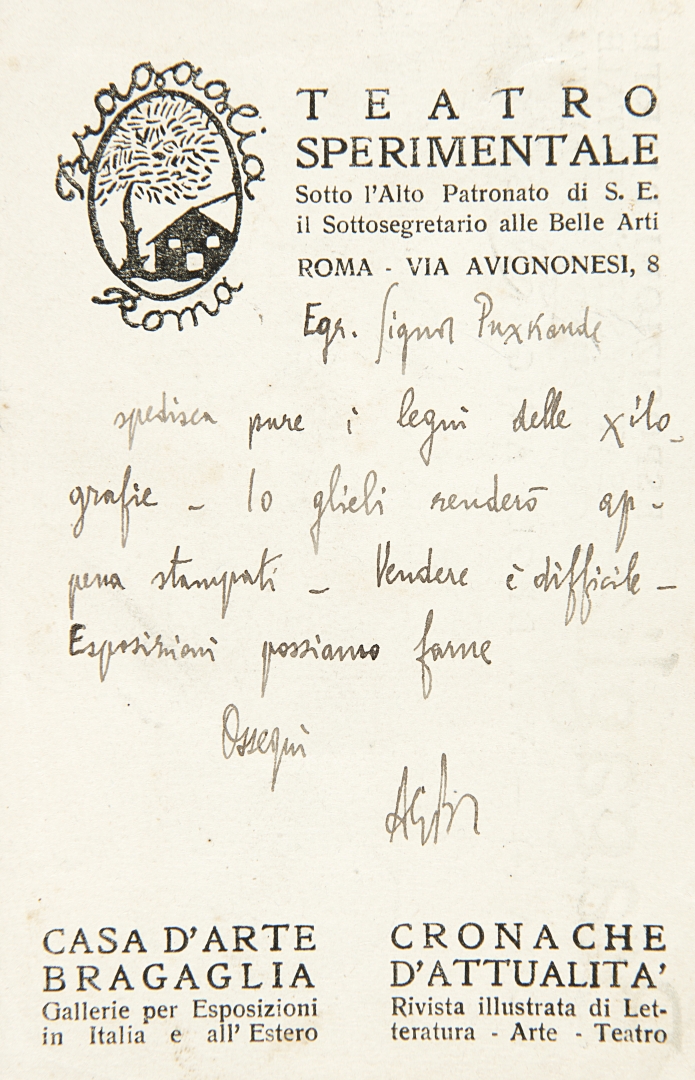 Bragaglia
Roma
TEATRO
SPERIMENTALE
Sotto l'Alto Patronato di S. E.
il Sottosegretario alle Belle Arti
ROMA - VIA AVIGNONESI, 8
Egr. Signor
spedisca pure i legni delle xilo-
grafie - Io glieli renderò ap-
pena stampati - Vendere è difficile -
Esposizioni possiamo farne
Ossequi
CASA D'ARTE
BRAGAGLIA
Gallerie per Esposizioni
in Italia e all' Estero
CRONACHE
D'ATTUALITA'
Rivista illustrata di Let-
teratura - Arte - Teatro